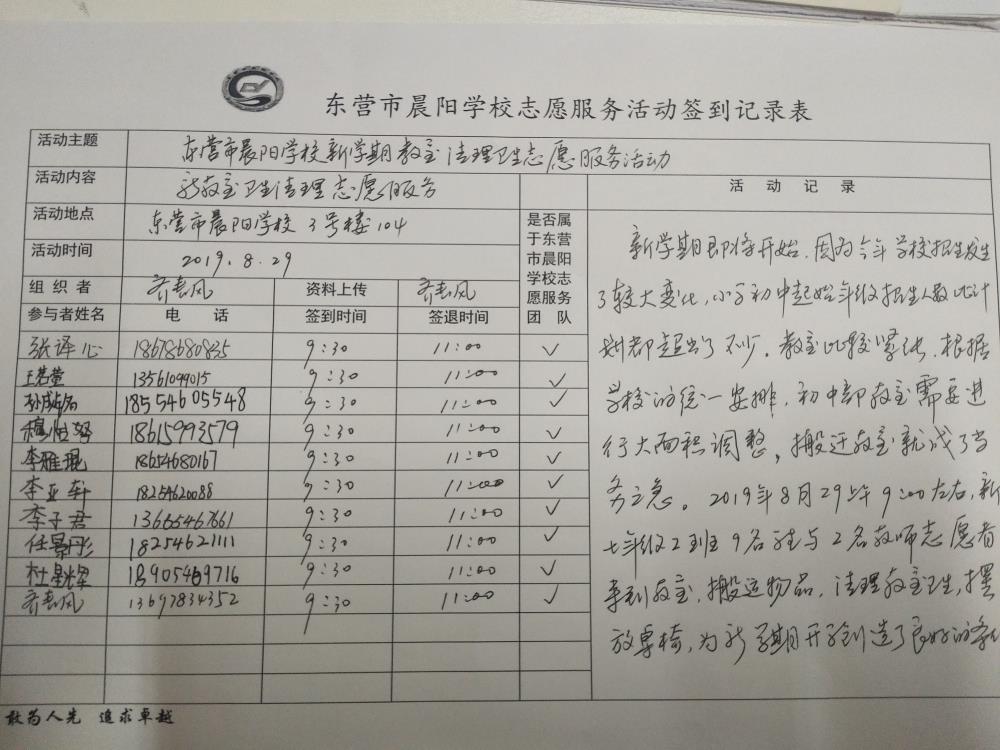 东营市晨阳学校志愿服务活动签到记录表
活动主题 东营市晨阳学校新学期教室清理卫生志愿服务活动
活动内容 新教室卫生清理志愿服务
活动地点 东营市晨阳学校3号楼104
活动时间 2019.8.29
组织者 齐春风 资料上传 齐春风
参与者姓名 电话 签到时间 签退时间 是否属于东营市晨阳学校志愿服务团队
张译心 18678680835 9:30 11:00 ✓
13561099015 9:30 11:00 ✓
18554605548 9:30 11:00 ✓
18615993579 9:30 11:00 ✓
李雅琨 18654680167 9:30 11:00 ✓
李亚轩 18254620088 9:30 11:00 ✓
李子君 13665467661 9:30 11:00 ✓
任景彤 18254621111 9:30 11:00 ✓
杜星辉 9:30 11:00 ✓
齐春风 13697834352 9:30 11:00 ✓
活动记录
新学期即将开始,因为今年学校招生发生
了较大变化,小学初中起始年级招生人数比计
划都超出了不少。教室比较紧张,根据
学校的统一安排,初中部教室需要进
行大面积调整,搬迁教室就成了当
务之急。2019年8月29上午9:00左右,新
七年级2班9名学生与2名教师志愿者
来到教室,搬运物品,清理教室卫生,摆
放桌椅,为新学期开学创造了良好的条件
敢为人先 追求卓越